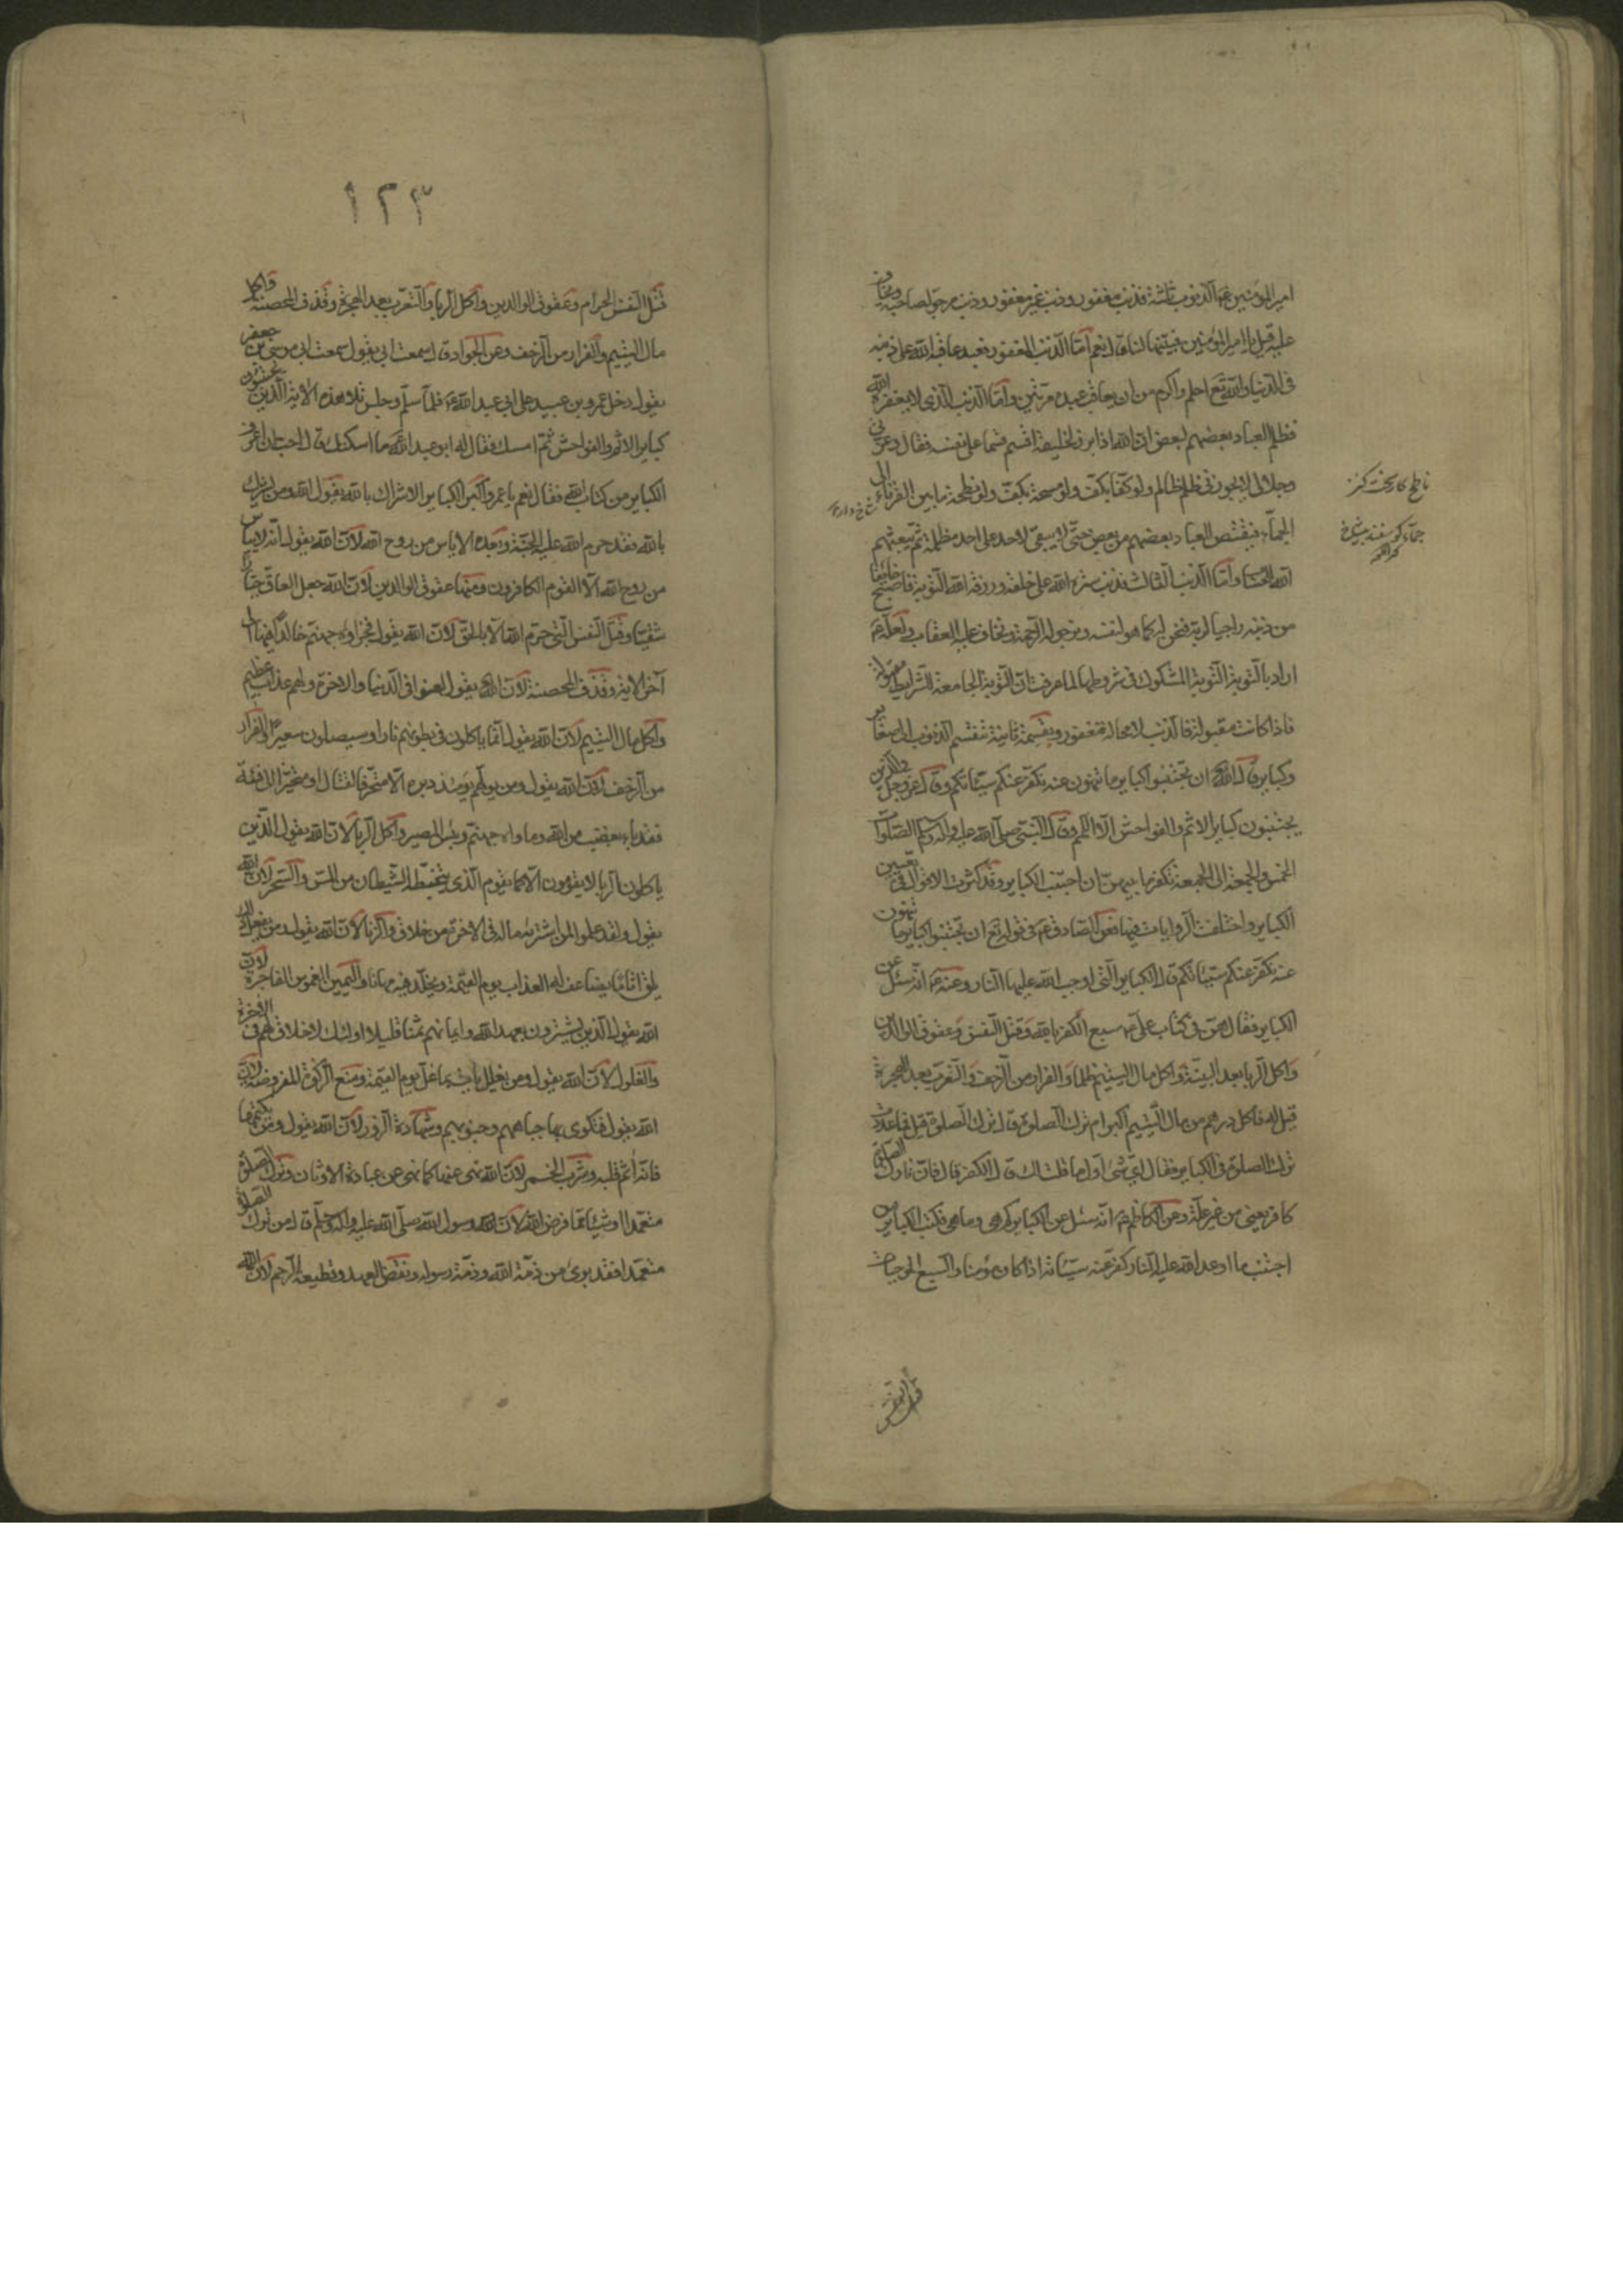 امير المؤمنين ع الذنوب ثلثة فذنب مغفور وذنب غير مغفور وذنب مرجو لصاحبه ويخاف
عليه قيل يا امير المؤمنين فبينها لنا قال نعم اما الذنب المغفور فعبد عاقبه الله على ذنبه
فى الدنيا والله تع احلم واكرم من ان يعاقب عبده مرتين واما الذنب الذى لا يغفره الله
فظلم العباد بعضهم لبعض ان الله اذا برز لخليقته اقسم قسما على نفسه فقال وعزتى
وجلالى لا يجوزنى ظلم ظالم ولو كفا بكف ولو مسحة بكف ولو نطحة ما بين القرناء الى
الجماء فيقتص العباد بعضهم من بعض حتى لا يبقى لاحد على احد مظلمة ثم يبعثهم
الله للحساب واما الذنب الثالث فذنب ستره الله على خلقه ورزقه الله التوبة فاصبح خايفا
من ذنبه راجيا لربه فنحن له كما هو لنفسه ونرجو له الرحمة ونخاف عليه العقاب ولعله ع
اراد بالتوبة التوبة المشكوك فى شروطها لما عرفت ان التوبة الجامعة للشرايط مقبولة
فاذا كانت مقبولة فالذنب لا محالة مغفور وبقسمة ثانية تنقسم الذنوب الى صغاير
وكباير قال الله تع ان تجتنبوا كباير ما تنهون عنه نكفر عنكم سيئاتكم وقال عز وجل والذين
يجتنبون كباير الاثم والفواحش الا اللمم وقال النبى صلى الله عليه واله وسلم الصلوات
الخمس والجمعة الى الجمعة تكفر ما بينهن ان اجتنب الكباير وقد اكثرت الاقوال فى تعيين
الكباير واختلفت الروايات فيها فعن الصادق ع فى قوله تع ان تجتنبوا كباير ما تنهون
عنه نكفر عنكم سيئاتكم قال الكباير التى اوجب الله عليها النار وعنه ع انه سئل عن
الكباير فقال هن فى كتاب على ع سبع الكفر بالله وقتل النفس وعقوق الوالدين
واكل الربا بعد البينة واكل مال اليتيم ظلما والفرار من الزحف والتعرب بعد الهجرة
قيل له فاكل درهم من مال اليتيم اكبر ام ترك الصلوة قال ترك الصلوة قيل فما عددت
ترك الصلوة فى الكباير فقال اى شئ اول ما قلت لك قال الكفر قال فان تارك الصلوة
كافر يعنى من غير علة وعن الكاظم ع انه سئل عن الكباير كم هى وما هى فكتب الكباير من
اجتنب ما اوعد الله عليه النار كفر عنه سيئاته اذا كان مؤمنا والسبع الموجبات
ناطح كار سخت كز
شاخ دار
جماء كوسفند بيشاخ
قتل النفس
١٢٣
قتل النفس الحرام وعقوق الوالدين واكل الربا والتعرب بعد الهجرة وقذف المحصنة واكل
مال اليتيم والفرار من الزحف وعن الجواد ع قال سمعت ابى يقول سمعت ابى موسى بن جعفر
يقول دخل عمرو بن عبيد على ابى عبد الله ع فلما سلم وجلس تلا هذه الاية الذين يجتنبون
كباير الاثم والفواحش ثم امسك فقال له ابو عبد الله ع ما اسكتك قال احب ان اعرف
الكباير من كتاب الله فقال نعم يا عمرو اكبر الكباير الاشراك بالله يقول الله ومن يشرك
بالله فقد حرم الله عليه الجنة وبعده الاياس من روح الله لان الله يقول انه لا يياس
من روح الله الا القوم الكافرون ومنها عقوق الوالدين لان الله جعل العاق جبارا
شقيا وقتل النفس التى حرم الله الا بالحق لان الله يقول فجزاؤه جهنم خالدا فيها الى
آخر الاية وقذف المحصنة لان الله يقول لعنوا فى الدنيا والاخرة ولهم عذاب عظيم
واكل مال اليتيم لان الله يقول انما ياكلون فى بطونهم نارا وسيصلون سعيرا والفرار
من الزحف لان الله يقول ومن يولهم يومئذ دبره الا متحرفا لقتال او متحيزا الى فئة
فقد باء بغضب من الله وماواه جهنم وبئس المصير واكل الربا لان الله يقول الذين
ياكلون الربا لا يقومون الا كما يقوم الذى يتخبطه الشيطان من المس والسحر لان الله
يقول ولقد علموا لمن اشتريه ما له فى الاخرة من خلاق والزنا لان الله يقول ومن يفعل ذلك
يلق اثاما يضاعف له العذاب يوم القيمة ويخلد فيه مهانا واليمين الغموس الفاجرة لان
الله يقول الذين يشترون بعهد الله وايمانهم ثمنا قليلا اولئك لا خلاق لهم فى الاخرة
والغلول لان الله يقول ومن يغلل يات بما غل يوم القيمة ومنع الزكوة المفروضة لان
الله يقول فتكوى بها جباههم وجنوبهم وشهادة الزور لان الله يقول ومن يكتمها
فانه آثم قلبه وشرب الخمر لان الله نهى عنها كما نهى عن عبادة الاوثان وترك الصلوة
متعمدا او شيئا مما فرض الله لان رسول الله صلى الله عليه واله وسلم قال من ترك الصلوة
متعمدا فقد برئ من ذمة الله وذمة رسوله ونقض العهد وقطيعة الرحم لان الله